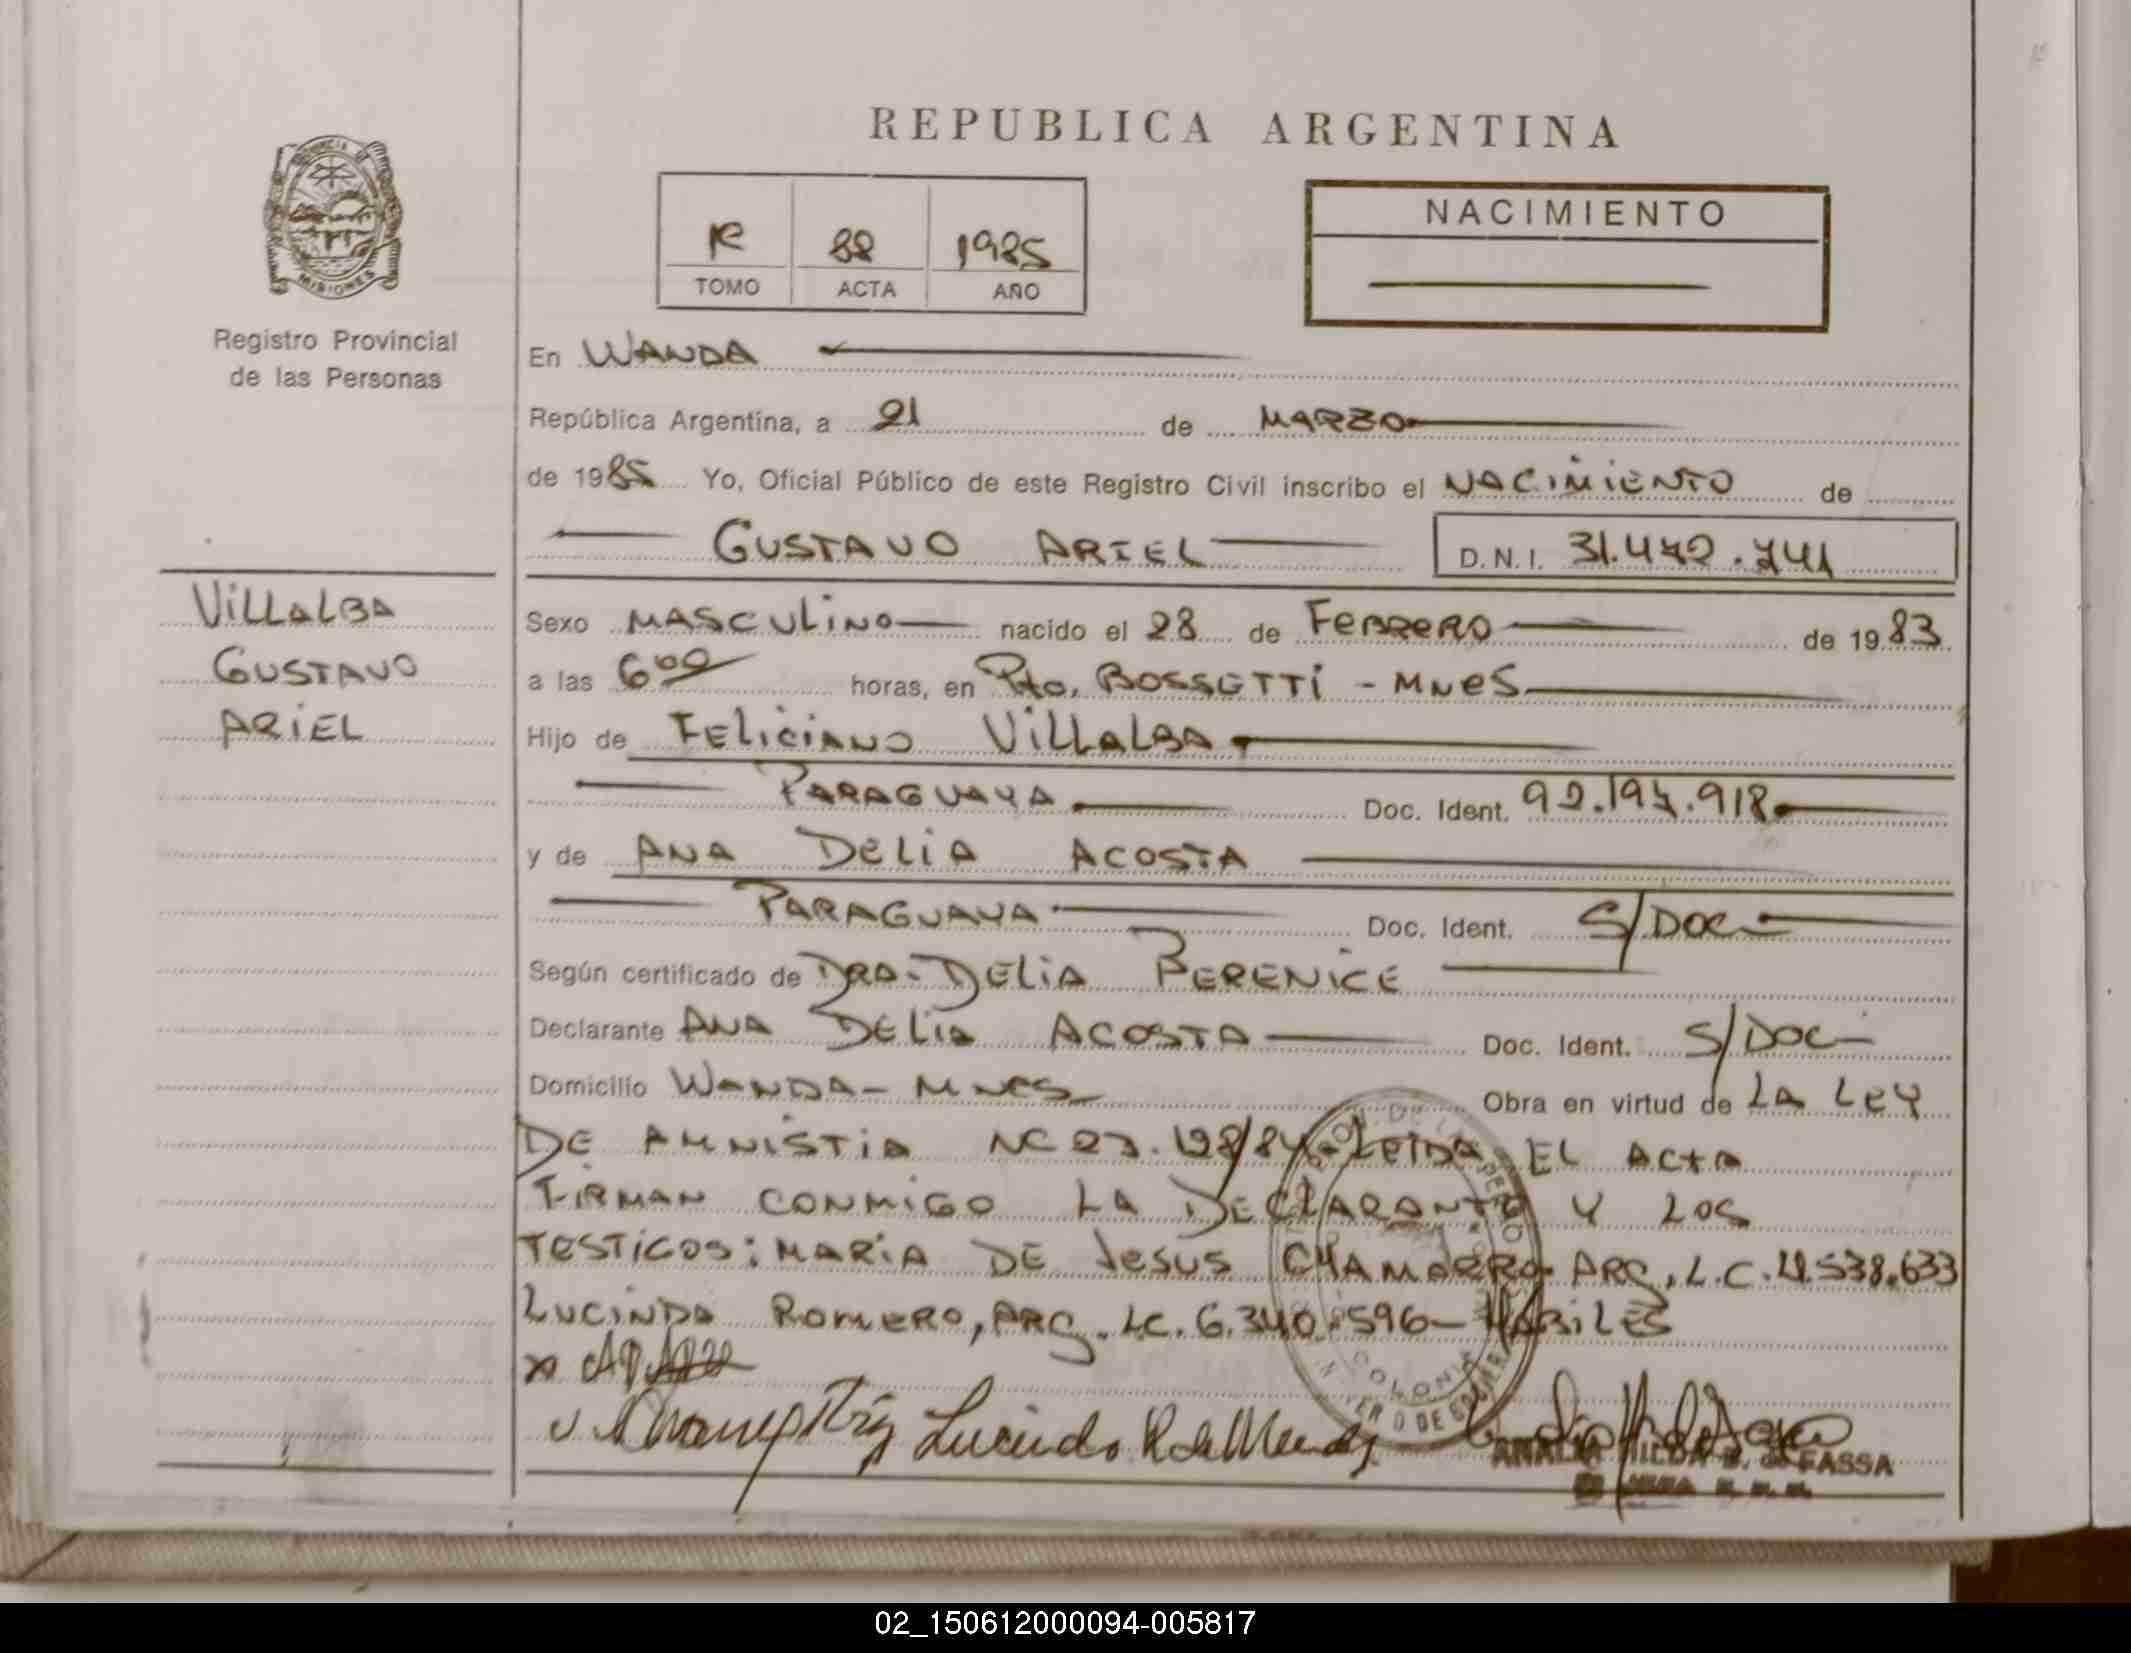 REPUBLICA ARGENTINA
PROVINCIA DE MISIONES
Registro Provincial
de las Personas
88 1985
TOMO ACTA AÑO
NACIMIENTO
En WANDA
República Argentina, a 21 de MARZO
de 1985 Yo, Oficial Público de este Registro Civil inscribo el NACIMIENTO de
GUSTAVO ARIEL D.N.I. 31.472.741
VILLALBA
GUSTAVO
ARIEL
Sexo MASCULINO nacido el 28 de FEBRERO de 1983
a las 6 00 horas, en Pto. BOSSETTI - MNES
Hijo de FELICIANO VILLALBA
PARAGUAYA Doc. Ident. 92.194.918
y de ANA DELIA ACOSTA
PARAGUAYA Doc. Ident. S/DOC-
Según certificado de DRA-DELIA BERENICE
Declarante ANA DELIA ACOSTA Doc. Ident. S/DOC-
Domicilio WANDA - MNES Obra en virtud de LA LEY
DE AMNISTIA Nº 23.128/84 - LEIDA EL ACTA
FIRMAN CONMIGO LA DECLARANTE Y LOS
TESTIGOS: MARIA DE JESUS CHAMORRO ARG, L.C. 538.633
LUCINDA ROMERO, ARG. LC. 6.340.596 - HABILES
Lucinda R de Mendez
ANALIA HILDA B. de FASSA
02_150612000094-005817